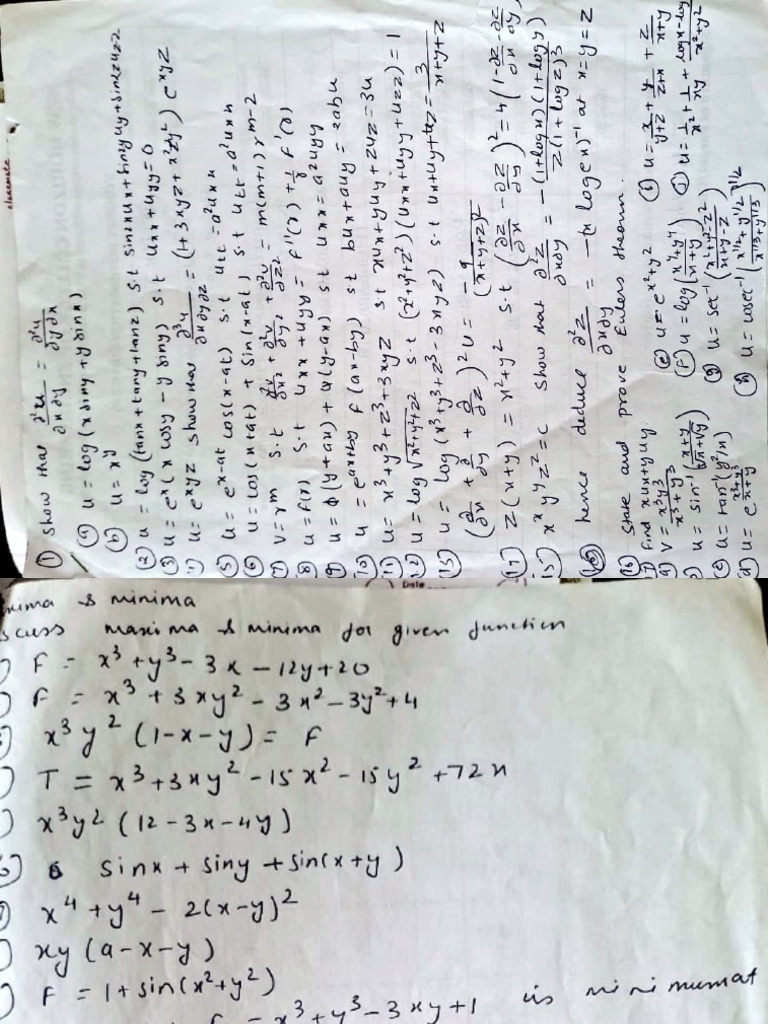 ① Show that ∂²u/∂x∂y = ∂²u/∂y∂x
ⓐ u = log(x siny + y sinx)
ⓑ u = xy
② u = log(tanx + tany + tanz) s.t sin2x ux + sin2y uy + sin2z uz = 2
③ u = eˣ(x cosy − y siny) s.t uxx + uyy = 0
u = e^xyz show that ∂³u/∂x∂y∂z = (1 + 3xyz + x²y²z²) e^xyz
⑤ u = e^x-at cos(x-at) s.t utt = a²uxx
⑥ u = cos(x+at) + sin(x-at) s.t utt = a²uxx
⑦ V = r^m s.t ∂²v/∂x² + ∂²v/∂y² + ∂²v/∂z² = m(m+1) r^m-2
⑧ u = f(r) s.t uxx + uyy = f''(r) + 1/r f'(r)
⑨ u = ɸ(y+ax) + ψ(y-ax) s.t uxx = a²uyy
⑩ u = e^ax+by f(ax-by) s.t bux + auy = 2abu
⑪ u = x³ + y³ + z³ + 3xyz s.t xux + yuy + zuz = 3u
⑫ u = log √x²+y²+z² s.t (x²+y²+z²)(uxx + uyy + uzz) = 1
⑬ u = log(x³+y³+z³-3xyz) s.t ux + uy + uz = 3/x+y+z
(∂/∂x + ∂/∂y + ∂/∂z)² u = -9/(x+y+z)²
⑭ z(x+y) = x²+y² s.t (∂z/∂x - ∂z/∂y)² = 4(1 - ∂z/∂x - ∂z/∂y)
⑮ xˣ yʸ zᶻ = c show that ∂²z/∂x∂y = -(1+logx)(1+logy)/z(1+logz)³
hence deduce ∂²z/∂x∂y = -(x log ex)⁻¹ at x=y=z
⑯ State and prove Eulers theorem.
⑰ find xux + yuy
ⓐ V = x³y³/x³+y³
u = sin⁻¹(x+y/√x+√y)
ⓒ u = tan⁻¹(y²/x)
ⓓ u = e
ⓔ u = e^x²+y²
ⓕ u = log(x⁴+y⁴/x+y)
ⓖ u = sec⁻¹
u = cosec⁻¹(x^1/2+y^1/2/x^1/3+y^1/3)^1/2
u = x/y+z + y/z+x + z/x+y
u = 1/x² + 1/xy + logx-logy/x²+y²
classmate
Date
& minima
maxima & minima for given function
F = x³ + y³ - 3x - 12y + 20
F = x³ + 3xy² - 3x² - 3y² + 4
x³y² (1-x-y) = F
T = x³ + 3xy² - 15x² - 15y² + 72x
x³y² (12 - 3x - 4y)
sinx + siny + sin(x+y)
x⁴ + y⁴ - 2(x-y)²
xy (a-x-y)
F = 1 + sin(x²+y²)
= x³ + y³ - 3xy + 1 is minimum at